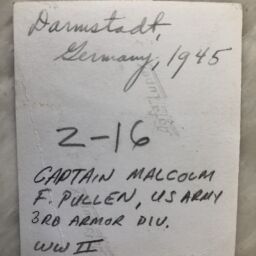 Darmstadt,
Germany, 1945
2-16
CAPTAIN MALCOLM
F. PULLEN, US ARMY
3RD ARMOR DIV.
WW II